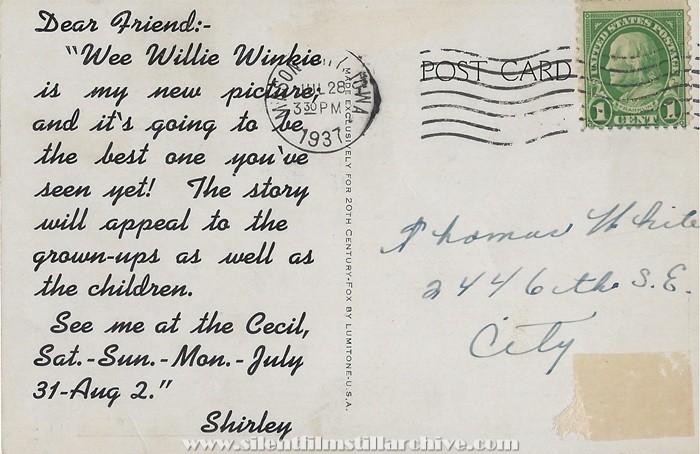 Dear Friend:-
"Wee Willie Winkie
is my new picture,
and it's going to be
the best one you've
seen yet! The story
will appeal to the
grown-ups as well as
the children.
See me at the Cecil,
Sat.-Sun.-Mon.-July
31-Aug 2."
Shirley
JUL 28
3 30 PM
1937
IOWA
MADE EXCLUSIVELY FOR 20TH CENTURY-FOX BY LUMITONE-U.S.A.
POST CARD
UNITED STATES POSTAGE
1 CENT 1
Thomas White
244 6th S.E.
City
www.silentfilmstillarchive.com